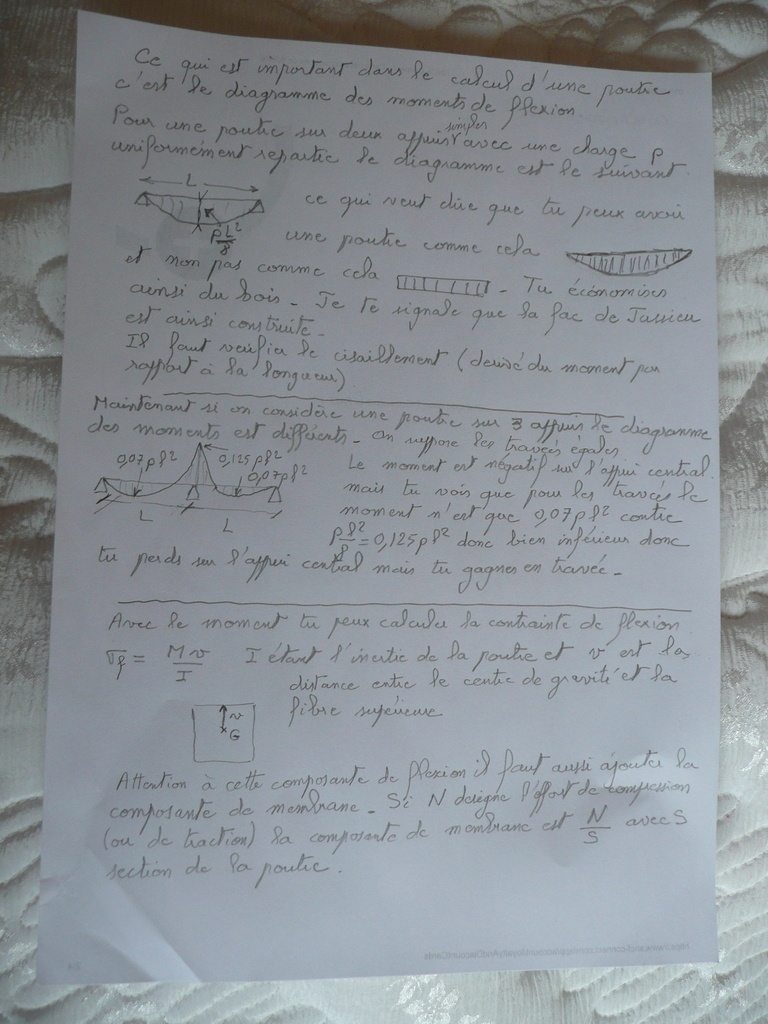 Ce qui est important dans le calcul d'une poutre
c'est le diagramme des moments de flexion.
Pour une poutre sur deux appuis simples avec une charge p
uniformément repartie le diagramme est le suivant.
L
ce qui veut dire que tu peux avoir
pL²/8
une poutre comme cela
et non pas comme cela . Tu économises
ainsi du bois - Je te signale que la fac de Jussieu
est ainsi construite -
Il faut verifier le cisaillement (derivé du moment par
rapport à la longueur)
Maintenant si on considère une poutre sur 3 appuis le diagramme
des moments est différents - On suppose les travées égales
0,07pl² 0,125pl² 0,07pl²
L L
Le moment est négatif sur l'appui central
mais tu vois que pour les travées le
moment n'est que 0,07pl² contre
pl²/8 = 0,125pl² donc bien inférieur donc
tu perds sur l'appui central mais tu gagnes en travée -
Avec le moment tu peux calculer la contrainte de flexion
σf = Mv/I I étant l'inertie de la poutre et v est la
distance entre le centre de gravité et la
fibre supérieure
v
G
Attention à cette composante de flexion il faut aussi ajouter la
composante de membrane - Si N designe l'effort de compression
(ou de traction) la composante de membrane est N/S avec S
section de la poutre.